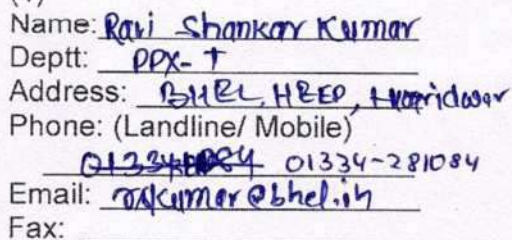 Name: Ravi Shankar Kumar
Deptt: PPX- T
Address: BHEL, HEEP, Haridwar
Phone: (Landline/ Mobile)
01334-281084
Email: rskumar@bhel.in
Fax: